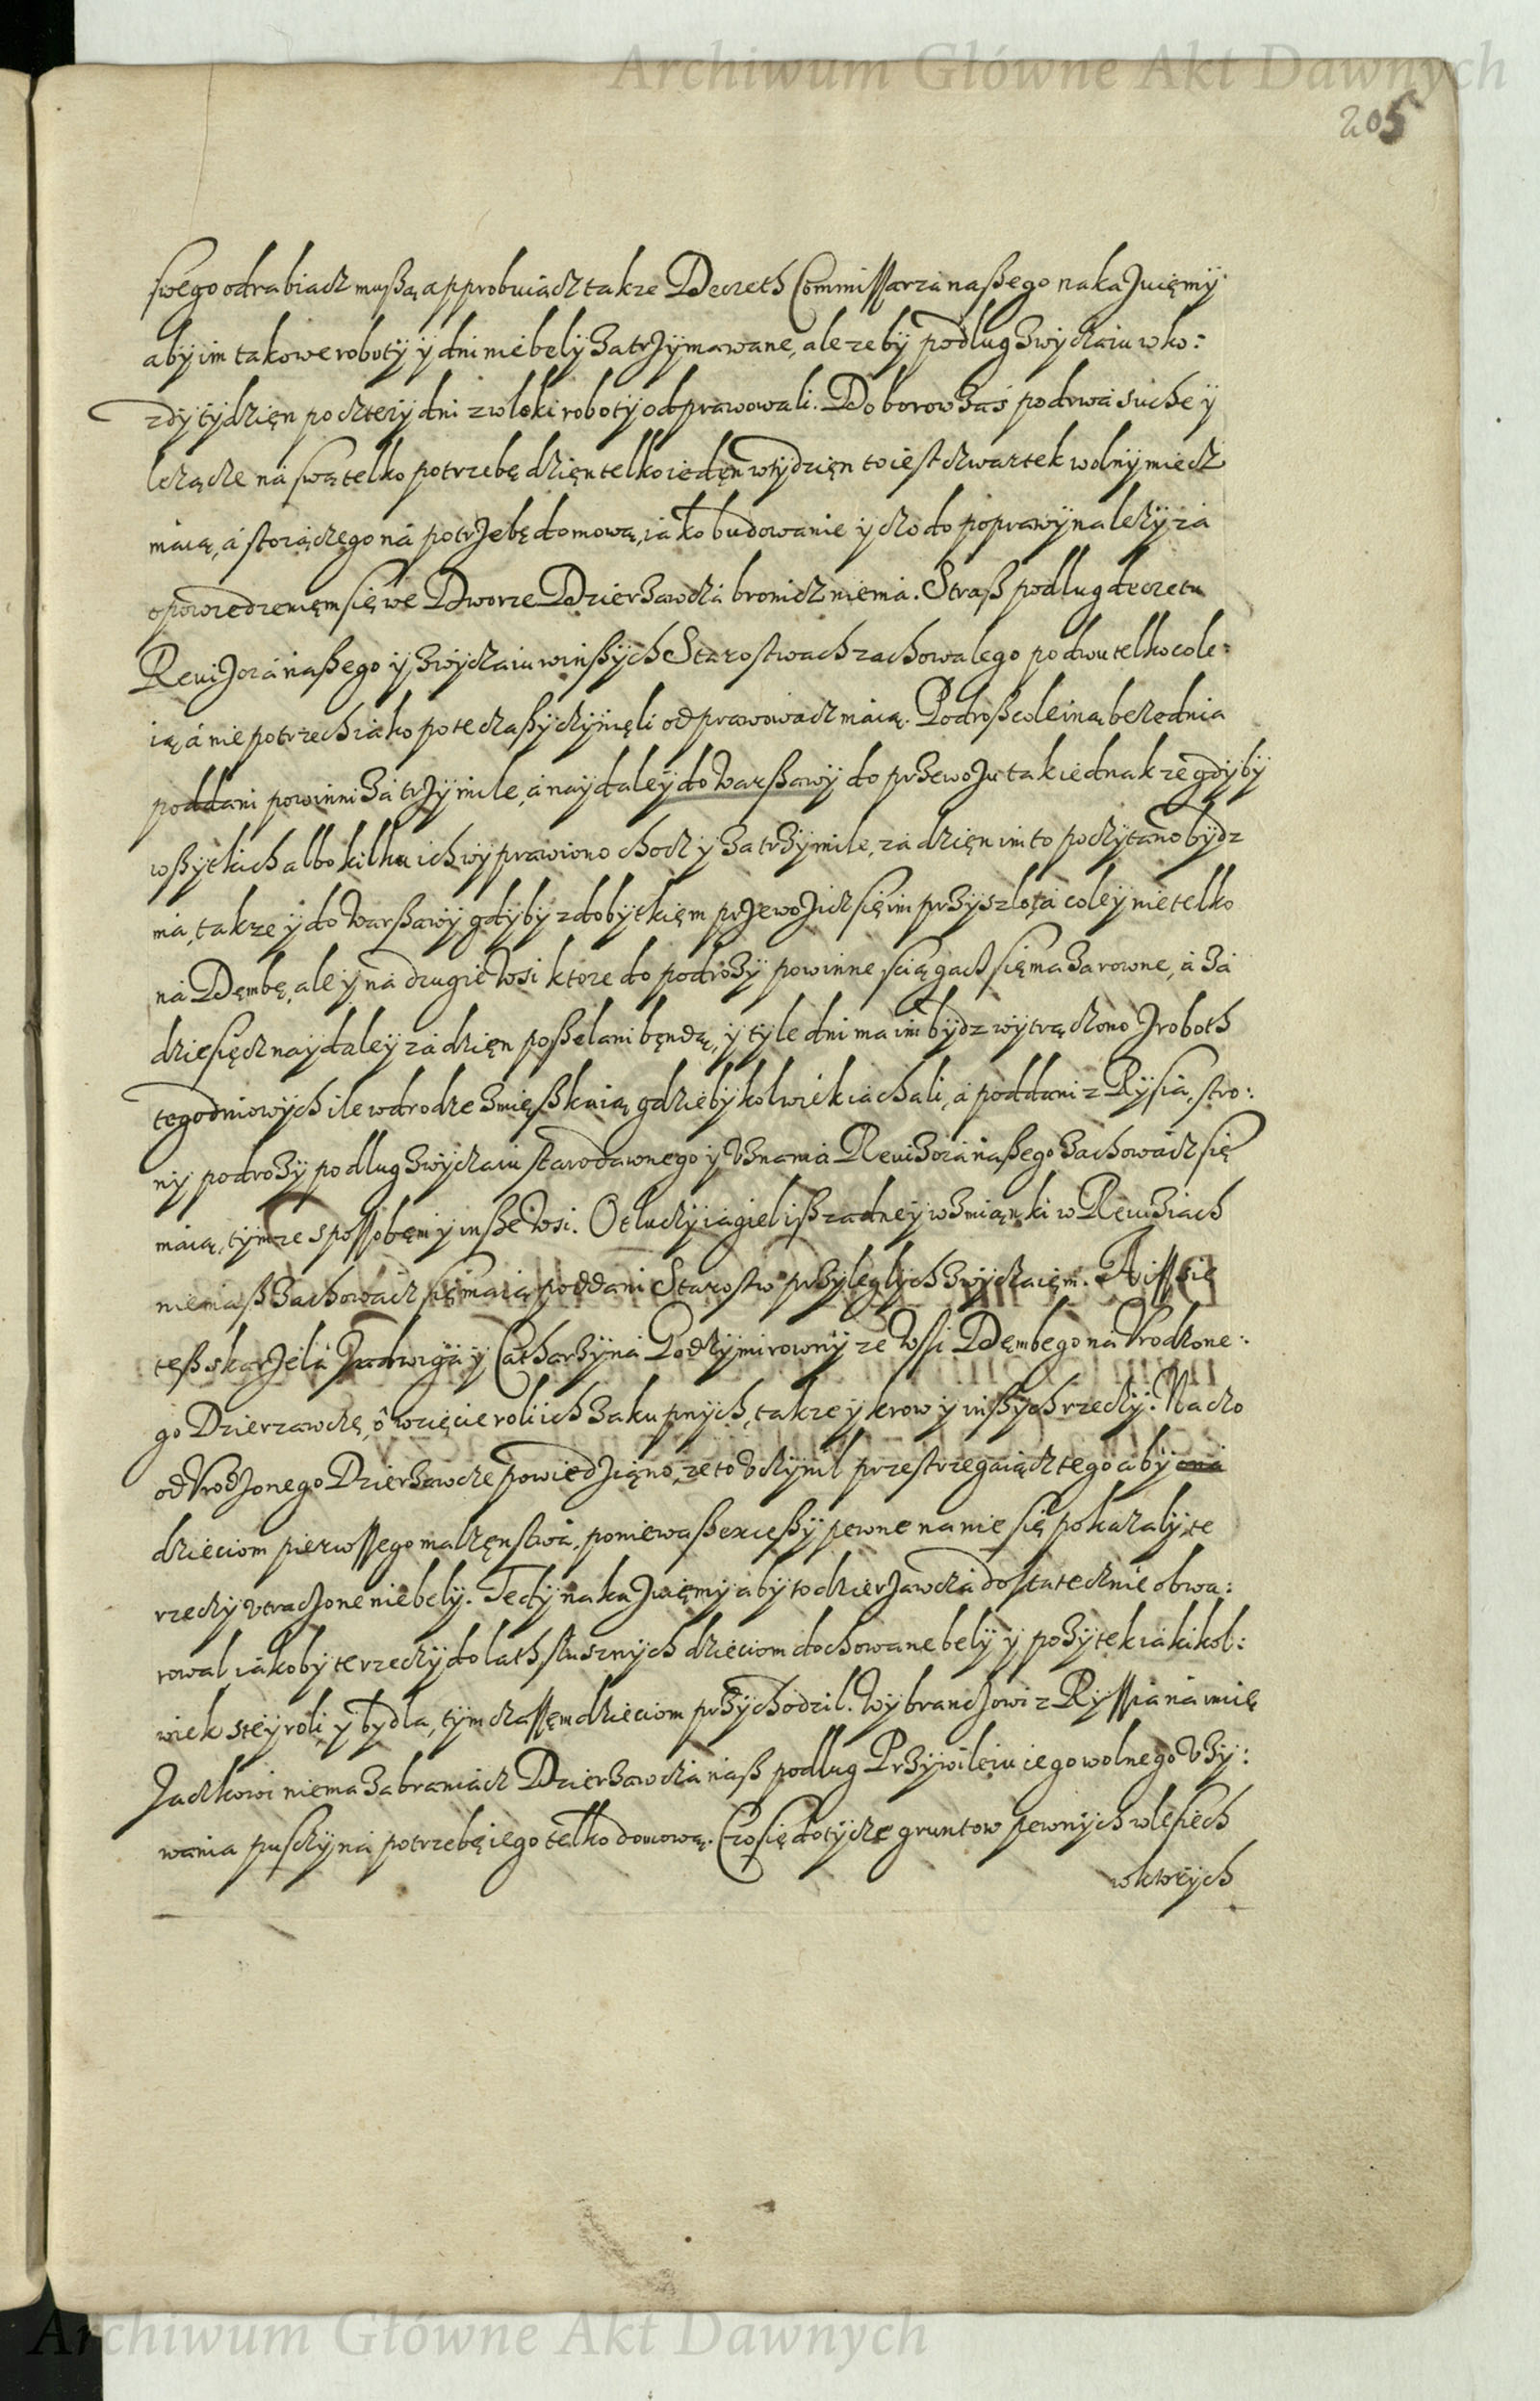 Archiwum Główne Akt Dawnych
205
swego odrabiacz mußą, approbuiącz takze Decreth Commissarza naßego nakazuięmy
aby im takowe roboty y dni niebely zatrzymawane, ale zeby podlug zwyczaiu w ko:
zdy tydzięn po cztery dni z wloki roboty odprawowali. Do borow zas po drwa suche y
lezącze na swą telko potrzebę dzięn telko iedęn w tydzięn to iest czwartek wolny miecz
maią, a stoiączego na potrzebę domową, iako budowanie y czo do poprawy nalezy za
opowiedzenięm się we Dworze Dzierzawcza bronicz niema. Straß podlug decretu
Reuizora naßego y zwyczaiu w inßych Starostwach zachowalego po dwu telko cole:
ią, a nie po trzech iako po te czaßy czynięli odprawowacz maią. Podroß coleiną beze dnia
poddani powinni za trzy mile, a naydaley do Warßawy do przewozu tak iednakze gdyby
wßytkich albo kilku ich wyprawiono chocz y za trzy mile, za dzięn im to poczytano bydz
ma, takze y do Warßawy gdyby z dobytkięm przewozicz się im przyszlo, a coley nie telko
na Dęmbę, ale y na drugie Wsi ktore do podrozy powinne sciągacz się ma zarowne, a za
dziesięcz naydaley za dzięn poßelani będą, y tyle dni ma im bydz wytrączono z roboth
tegodniowych ile w drodze zmięßkaią gdziebykolwiek iachali, a poddani z Rysia, stro:
ny podrozy podlug zwyczaiu starodawnego y Uznania Reuizora naßego zachowacz się
maią, tymze spossobęm y inße Wsi. Otluczy iagiel iß zadney wzmiąnki w Reuiziach
niemaß zachowacz się maią poddani Starostw przyleglych zwyczaięm. A iß sie
teß skarzela Jadwiga y Catharzyna Godzymirowny ze Wsi Dęmbego na Urodzone:
go Dzierzawczę, o wzięcie roli ich zakupnych, takze y krow y inßych rzeczy. Na czo
od Urodzonego Dzierzawcze powiedziąno, ze to Uczynil przestrzegaiącz tego aby
dzieciom pierwssego malzęnstwa, poniewaß excessy pewne na nie się pokazaly, te
rzeczy utraczone niebely. Tedy nakazuięmy aby to dzierzawcza dostatecznie obwa:
rowal, iakoby te rzeczy do lath slusznych dzieciom dochowane bely y pozytek iakikol:
wiek s tey roli y bydla, tym czassęm dzieciom przychodzil. Wybranczowi z Ryssia na imię
Jaczkowi niema zabraniacz Dzierzawcza naß podlug Przywileiu iego wolnego Uzy:
wania puszczy na potrzebę iego telko domową. Czo się dotycze gruntow pewnych w lesiech
w ktorych
Archiwum Główne Akt Dawnych